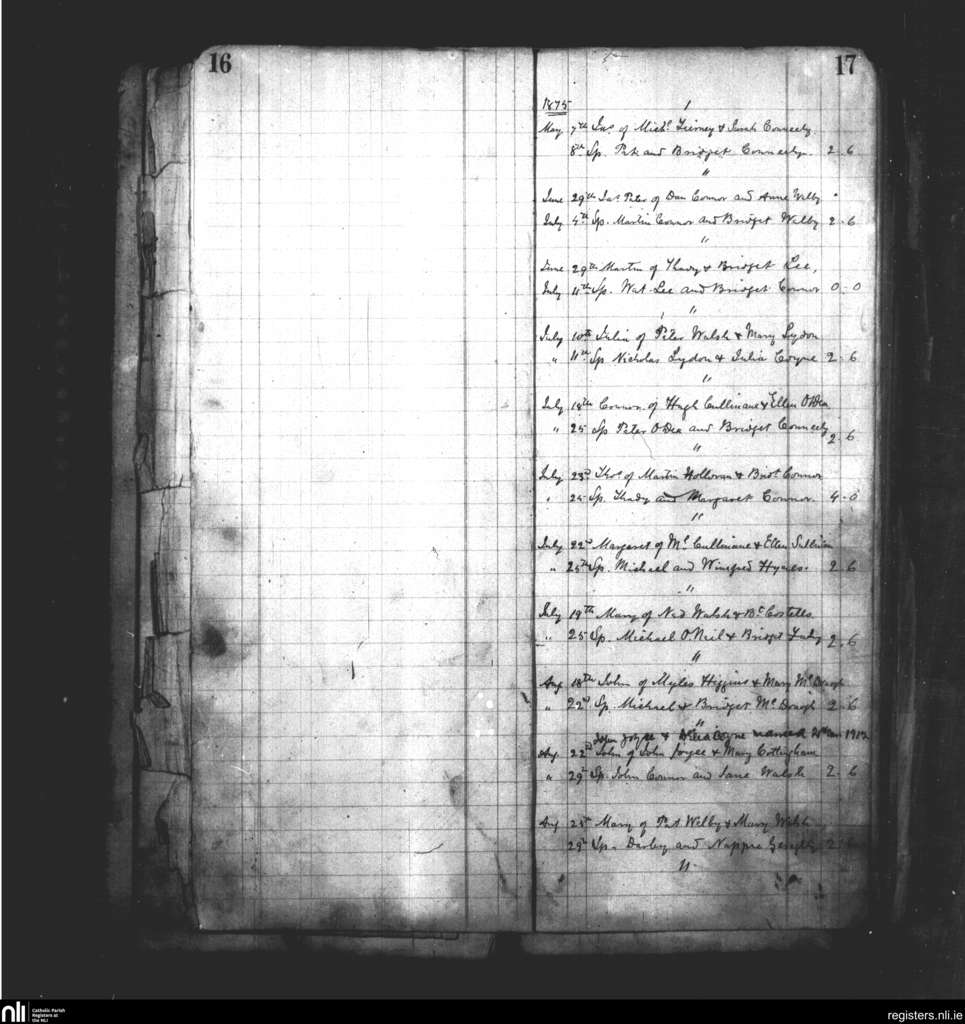 16
17
1875
May 7th Jas of Michl Tierney & Sarah Conneely
8th Sp. Pat and Bridget Conneely. 2-6
"
June 29th Jas Peter of Dan Connor and Anne Wilby
July 4th Sp. Martin Connor and Bridget Wilby 2-6
"
June 29th Martin of Thady & Bridget Lee,
July 11th Sp. Wat Lee and Bridget Connor 0-0
"
July 10th Julia of Peter Walsh & Mary Lydon
" 11th Sp Nicholas Lydon & Julia Coyne 2-6
"
July 18th Connor of Hugh Cullinane & Ellen O'Dea
" 25 Sp Peter O'Dea and Bridget Conneely 2-6
"
July 23d Thos of Martin Holloran & Bridt Connor
" 25 Sp. Thady and Margaret Connor. 4-0
"
July 22d Margaret of Ml Cullinane & Ellen Sullivan
" 25th Sp. Michael and Winefred Hynes. 2-6
"
July 19th Mary of Ned Walsh & Bt Costello
" 25 Sp. Michael O'Neil & Bridget 2-6
"
Aug 18th John of Myles Higgins & Mary McDonagh
" 22d Sp. Michael & Bridget McDonagh 2-6
"
John Joyce & Delia Coyne married 1912
Aug 22d John of John Joyce & Mary Cottingham
" 29th Sp. John Connor and Jane Walsh 2-6
Aug 25th Mary of Pat Wilby & Mary Walsh
29th Sp. Darby and Nappie 2-6
"
nli
Catholic Parish
Registers at
the NLI
registers.nli.ie